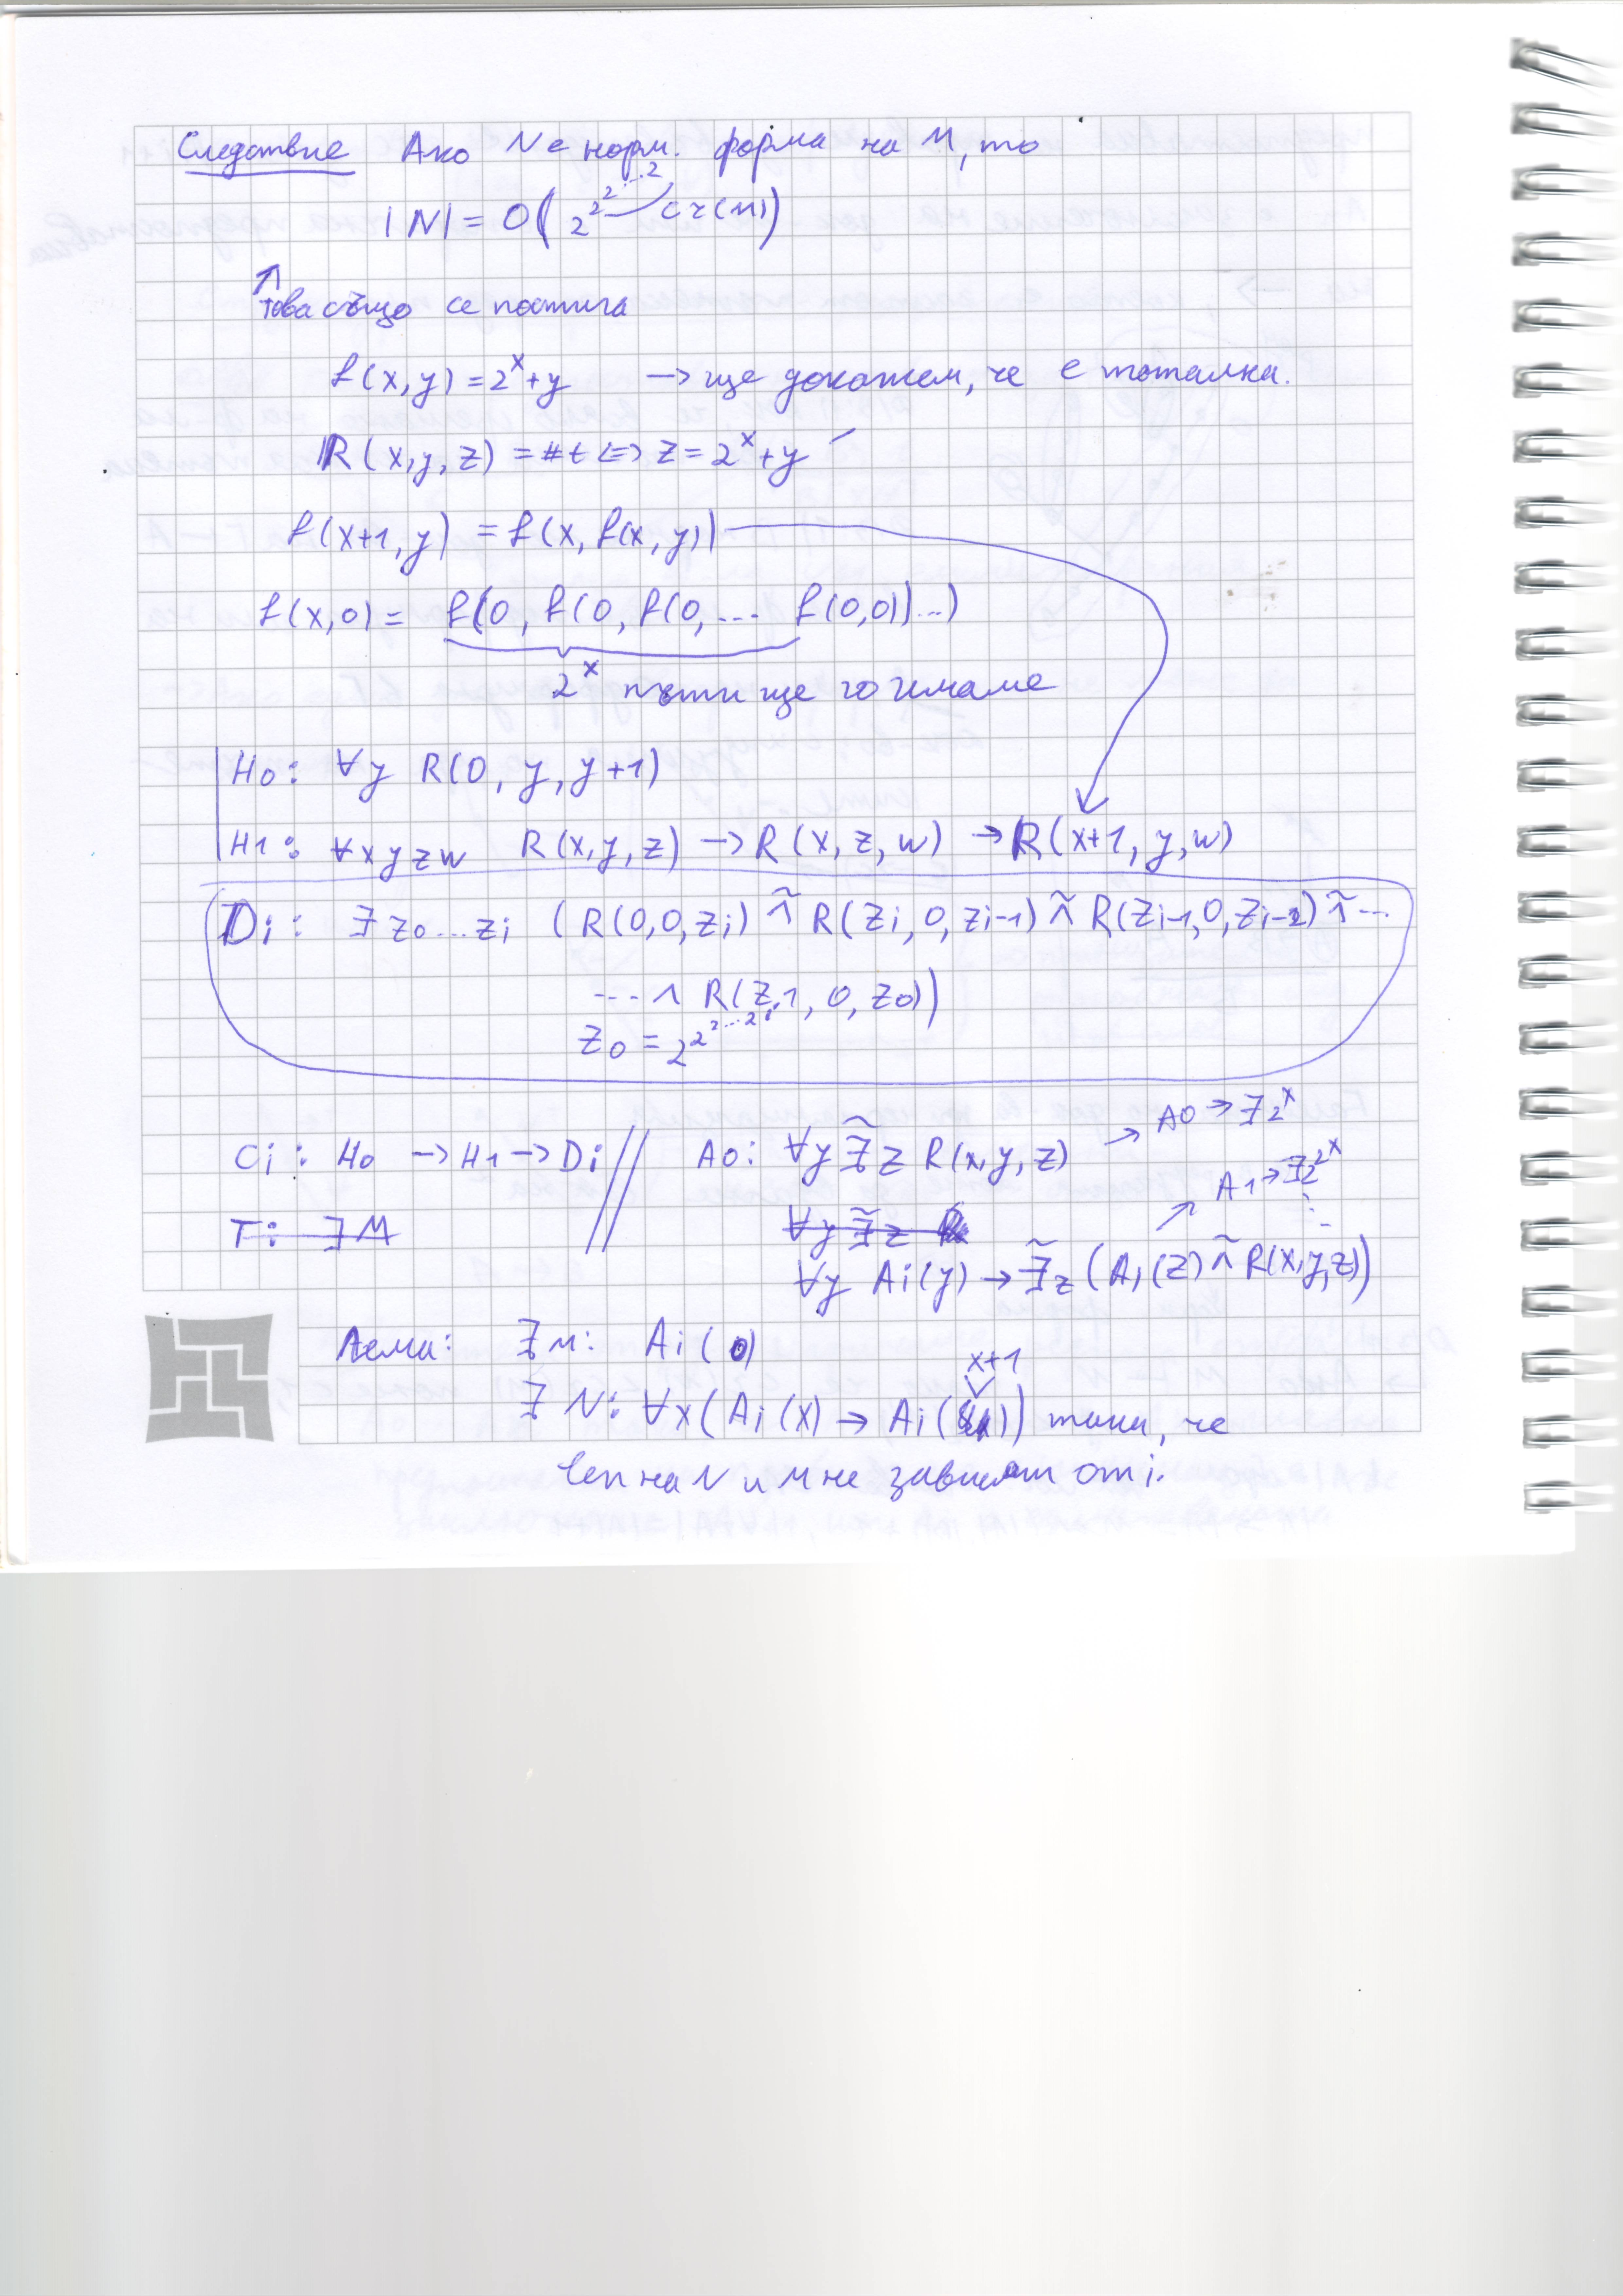 Следствие Ако N е норм. форма на M, то
|N| = O(2^2^2^...^2 cr(M))
↑ това също се постига
f(x,y) = 2^x + y → ще докажем, че е тотална.
R(x,y,z) = #t <=> z = 2^x + y
f(x+1,y) = f(x, f(x,y))
f(x,0) = f(0, f(0, f(0, ... f(0,0))...)
2^x пъти ще го имаме
H0: ∀y R(0, y, y+1)
H1: ∀xyzw R(x,y,z) → R(x,z,w) → R(x+1, y, w)
Di: ∃z0...zi (R(0,0,zi) ∧̃ R(zi,0,zi-1) ∧̃ R(zi-1,0,zi-2) ∧̃ ...
... ∧ R(z1, 0, z0))
z0 = 2^2^2^...^2
Ci: H0 → H1 → Di // A0: ∀y ∃̃z R(x,y,z) → A0 → ∃2^x
T: ∃M ∀y ∃̃z R ↗ A1 → ∃2^2^x
∀y Ai(y) → ∃̃z (Ai(z) ∧̃ R(x,y,z))
Лема: ∃M: Ai(0)
x+1
∃N: ∀x(Ai(x) → Ai( )) така, че
lep на N и M не зависят от i.